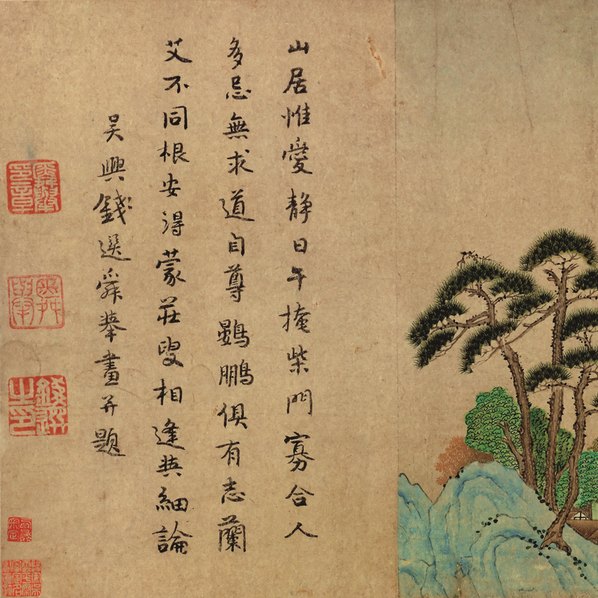 山居惟愛静日午掩柴門寡合人
多忌無求道自尊鷃鵬俱有志蘭
艾不同根安得蒙莊叟相逢與細論
吳興錢選舜舉畫并題
舜舉
錢選之印